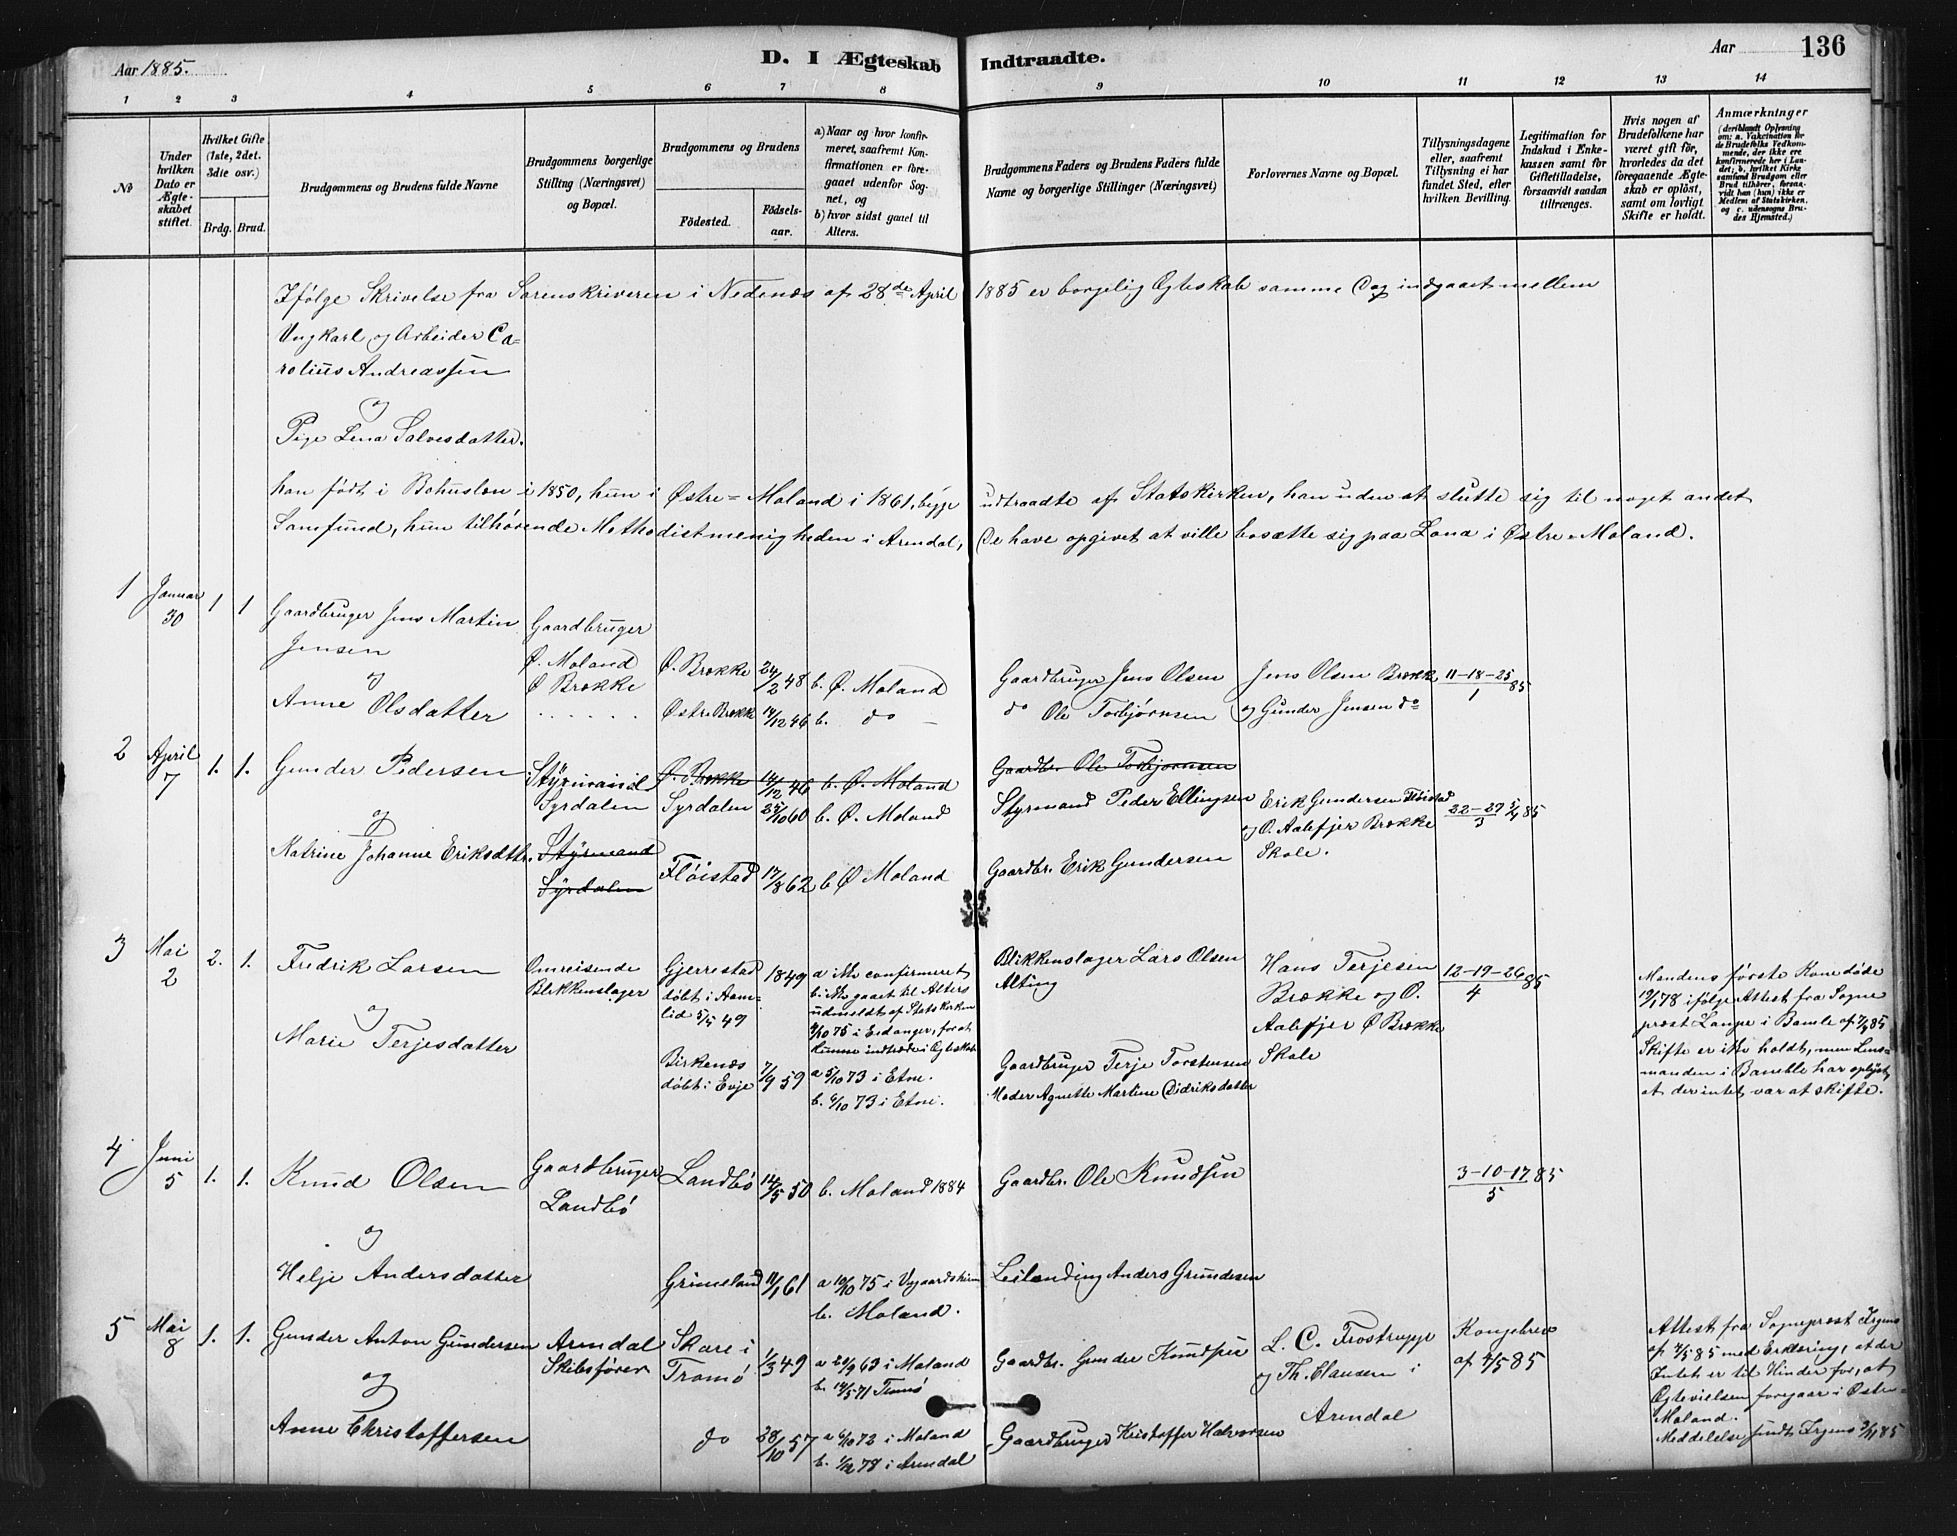 Aar 1885.
D. I Ægteskab Indtraadte.
Aar
136
1 2 3 4 5 6 7 8 9 10 11 12 13 14
No
Under hvilken Dato er Ægteskabet stiftet.
Hvilket Gifte (1ste, 2det. 3die osv.)
Brdg. Brud.
Brudgommens og Brudens fulde Navne
Brudgommens borgerlige Stilling (Næringsvei) og Bopæl.
Brudgommens og Brudens
Födested.
Födselsaar.
a) Naar og hvor konfirmeret, saafremt Konfirmationen er foregaaet udenfor Sognet, og
b) hvor sidst gaaet til Alters.
Brudgommens Faders og Brudens Faders fulde Navne og borgerlige Stillinger (Næringsvei)
Forlovernes Navne og Bopæl.
Tillysningsdagene eller, saafremt Tillysning ei har fundet Sted, efter hvilken Bevilling.
Legitimation for Indskud i Enkekassen samt for Giftetilladelse, forsaavidt saadan tiltrænges.
Hvis nogen af Brudefolkene har været gift för, hvorledes da det foregaaende Ægteskab er oplöst, samt om lovligt Skifte er holdt.
Anmærkninger
(deriblandt Oplysning om: a. Vakcination for de Brudefolks Vedkommende, der ikke ere konfirmerede her i Landet; b. hvilket Kirkesamfund Brudgom eller Brud tilhörer, forsaavidt han (hun) ikke er Medlem af Statskirken. og c. udensogns Brudes Hjemsted.)
Ifölge Skrivelse fra Sorenskriveren i Nedenæs af 28de April 1885 er borgelig Egteskab samme Dag indgaaet mellem
Ungkarl og Arbeider Ca=
rolius Andreassen
og
Pige Lena Salvesdatter.
han født i Bohuslen i 1850, hun i Østre=Moland i 1861, begge udtraadte af Statskirken, han uden at slutte sig til noget andet
Samfund, hun tilhørende Methodistmenigheden i Arendal, De have opgivet at ville bosætte sig paa Lona i Østre-Moland.
1 Januar 30 1 1 Gaardbruger Jens Martin Jensen
Gaardbruger Ø. Moland Ø Brække
Ø. Brække 24/2 48 b. Ø. Moland
Gaardbruger Jens Olsen
Jens Olsen Brække og Gunder Jensen do
11-18-25/1 85
og
Anne Olsdatter
Østre Brække 14/12 46 b. do
do Ole Torbjørnsen
2 April 7 1. 1. Gunder Pedersen
Styrmand Syrdalen
Ø. Brække 14/12 46 b. Ø. Moland
Gaardbr. Ole Torbjørnsen
Syrdalen 25/10 60 b. Ø. Moland
Styrmand Peder Ellingsen
Erik Gundersen Flöistad og O. Aalefjer Brække Skole.
22-27/3 5/4 85
og
Katrine Johanne Eriksdttr.
Styrmand Syrdalen
Flöistad 17/8 62 b Ø Moland
Gaardbr. Erik Gundersen
3 Mai 2 2. 1. Fredrik Larsen
Omreisende Blikkenslager
Gjerrestad döbt i Aamlid 5/5 49
1849
a ikke confirmeret
b. ikke gaaet til Alters
udmeldt af Statskirken
9/10 75 i Eidanger, for at
kunne indtræde i Egteskab
Blikkenslager Lars Olsen Alting
Hans Terjesen Brække og O. Aalefjer Ø Brække Skole
12-19-26/4 85
Mandens første Kone døde
19/1 78 ifölge Attest fra Sogne
præst Lange i Bamle af 7/4 85
Skifte er ikke holdt, men Lens-
manden i Bamble har oplyst,
at der intet var at skifte.
og
Marie Terjesdatter
Birkenæs döbt i Evje 7/9 59
a 5/10 73 i Etne.
b. 6/10 73 i Etne.
Gaardbruger Terje Torstensen
Moder Agnette Martine Didriksdatter
4 Juni 5 1. 1. Knud Olsen
Gaardbruger Landbö
Landbö 14/5 50 b. Moland 1884
Gaardbr. Ole Knudsen
3-10-17/5 85
og
Helje Andersdatter
Grimeland 11/1 61
a 10/10 75 i
b. Moland.
Leilending Anders Grundesen
5 Mai 8 1. 1. Gunder Anton Gundersen
Arendal Skibsfører
Skare i Tromö 1/3 49
a 20/9 63 i Moland
b. 14/5 71 Tromö
Gaardbr. Gunder Knudsen
L. C. Frostrupp og Th. Clausen i Arendal
Kongebrev af 4/5 85
Attest fra Sogneprest Irgens
af 7/5 85 med Erklæring, at der
Intet er til Hinder for, at
Egtevielsen foregaar i Østre-
Moland.
Meddelelse sendt Irgens 2/11 85
og
Anne Christoffersen
do 28/10 57
a 6/10 72 i Moland
b. 1/12 78 i Arendal
Gaardbruger Kristoffer Halvorsen